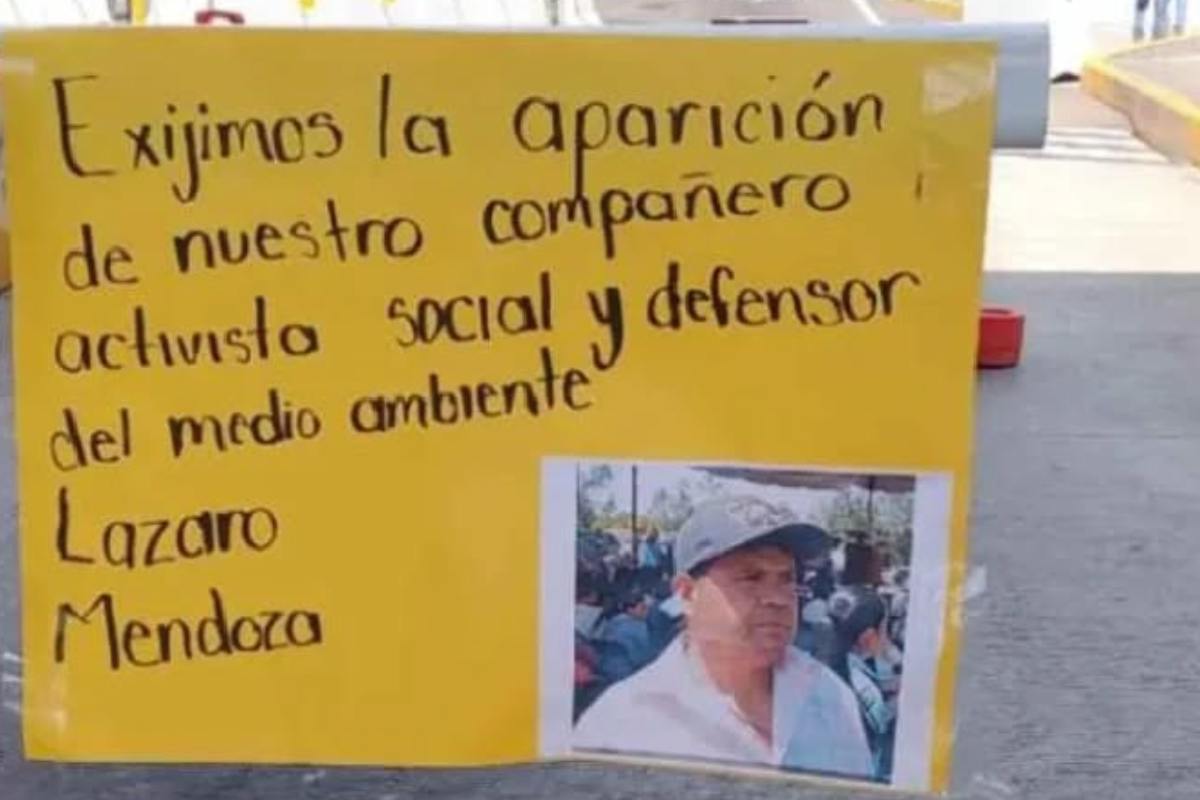 Exijimos la aparición
de nuestro compañero
activista social y defensor
del medio ambiente
Lazaro
Mendoza